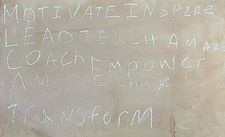 MOTIVATE INSPIRE
LEAD TEACH AMAZE
COACH EMPOWER
TRANSFORM